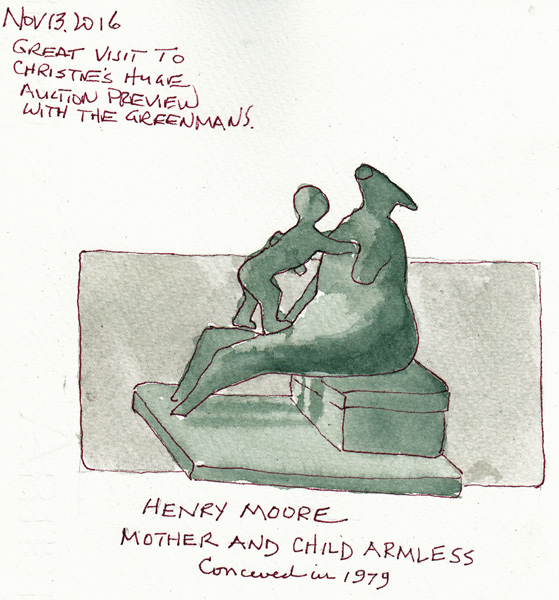 Nov 13. 2016
GREAT VISIT TO
CHRISTIE'S HUGE
AUCTION PREVIEW
WITH THE GREENMANS.
HENRY MOORE
MOTHER AND CHILD ARMLESS
Conceved in 1979